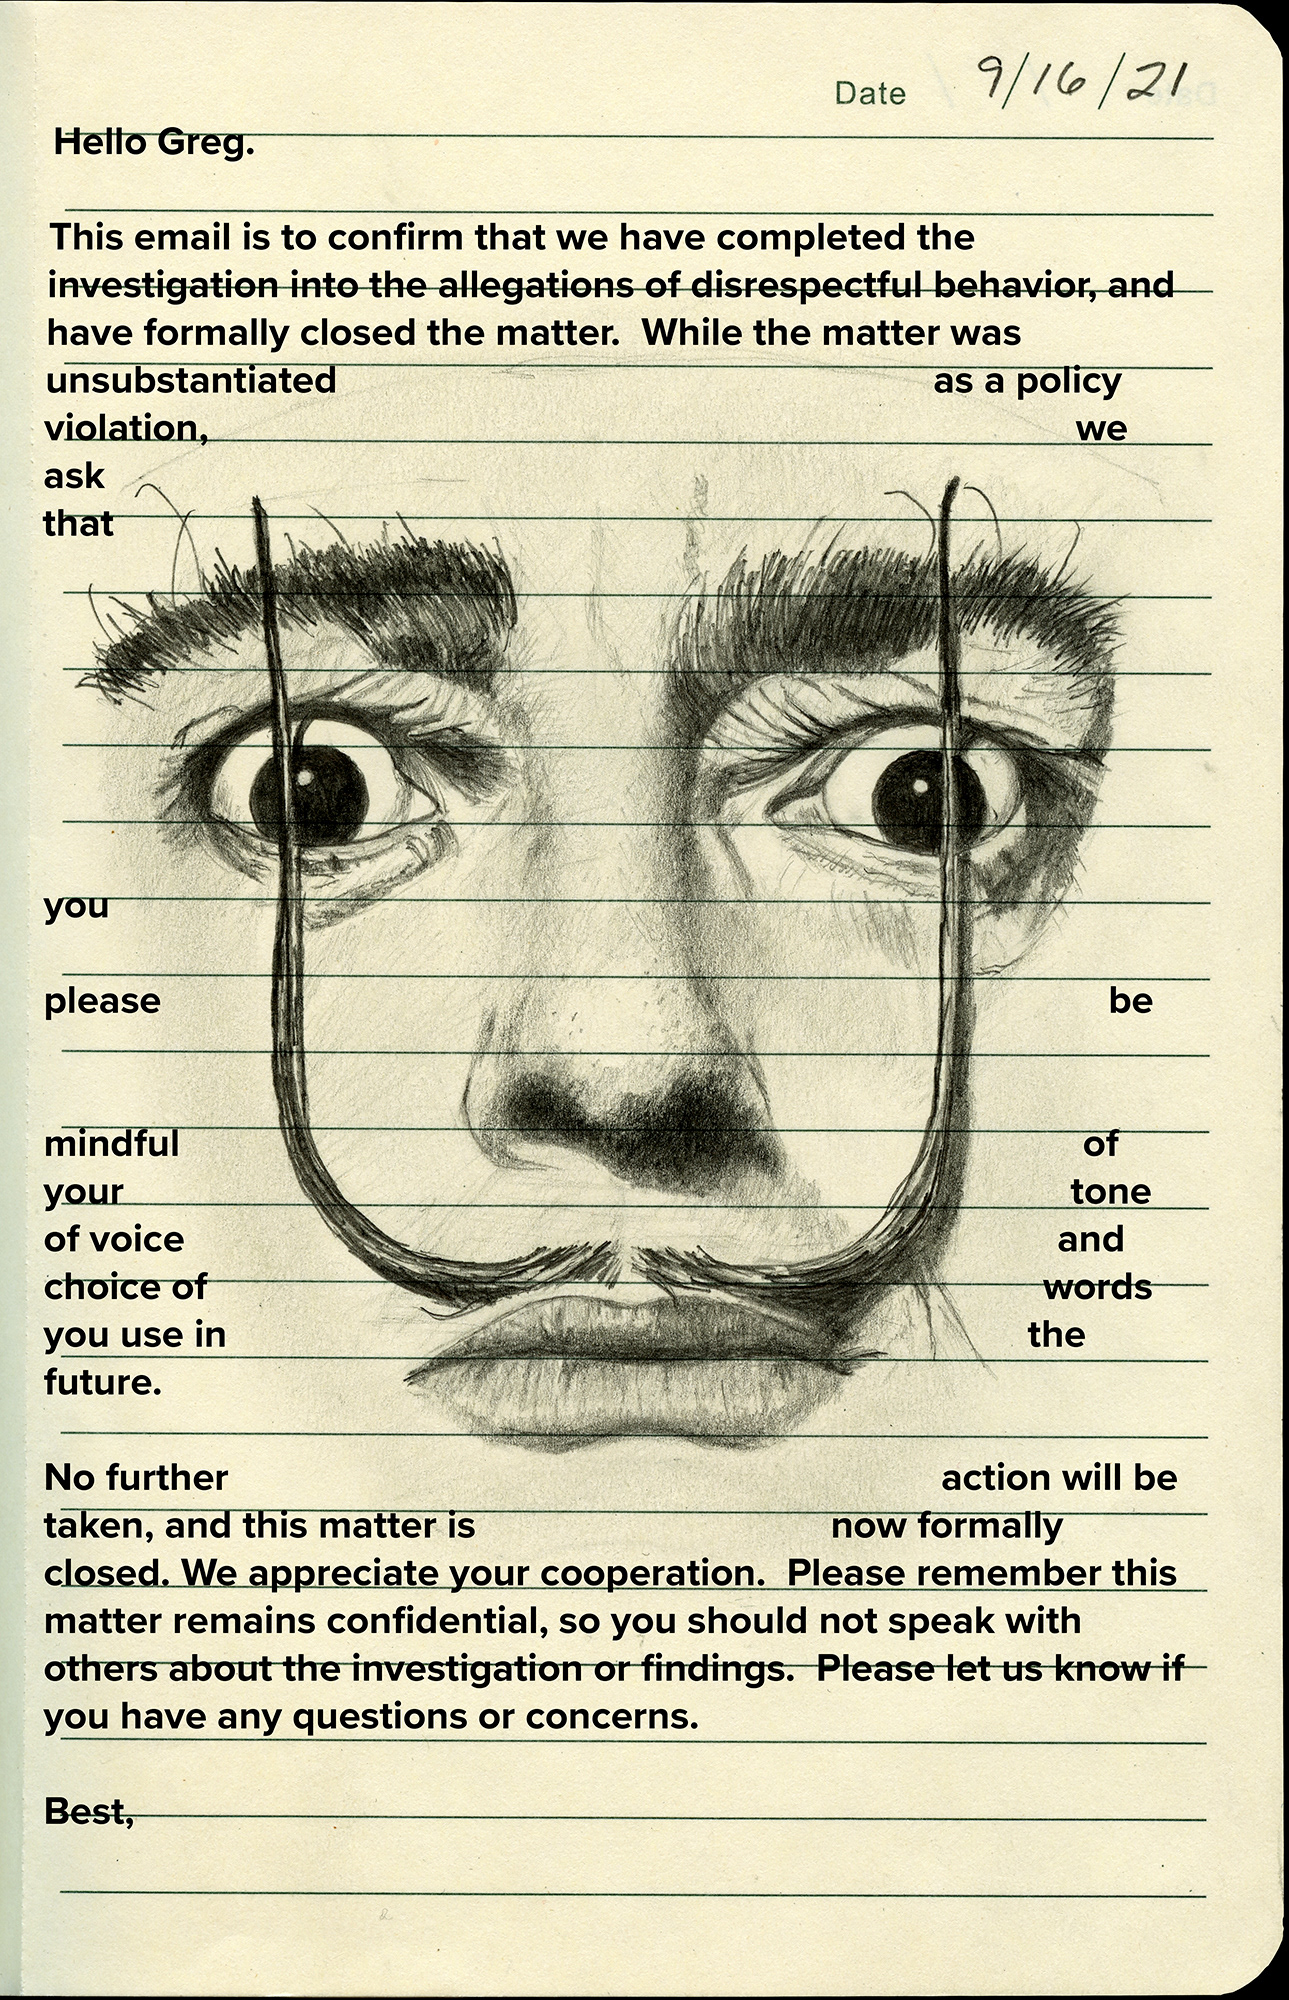 Date 9/16/21
Hello Greg.
This email is to confirm that we have completed the
investigation into the allegations of disrespectful behavior, and
have formally closed the matter.  While the matter was
unsubstantiated as a policy
violation, we
ask
that
you
please be
mindful of
your tone
of voice and
choice of words
you use in the
future.
No further action will be
taken, and this matter is now formally
closed. We appreciate your cooperation.  Please remember this
matter remains confidential, so you should not speak with
others about the investigation or findings.  Please let us know if
you have any questions or concerns.
Best,